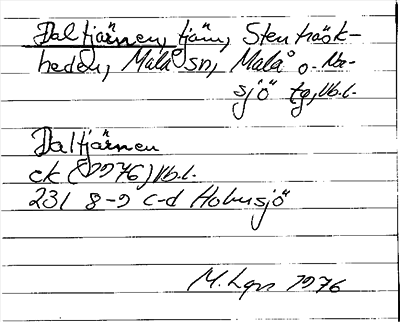 Daltjärnen, tjärn, Stenträsk-
heden, Malå sn, Malå o. No-
sjö tg, Vb.l.
Daltjärnen
ek (1976) Vb.l.
231 8-9 c-d Holmsjö
M. Lgn 1976